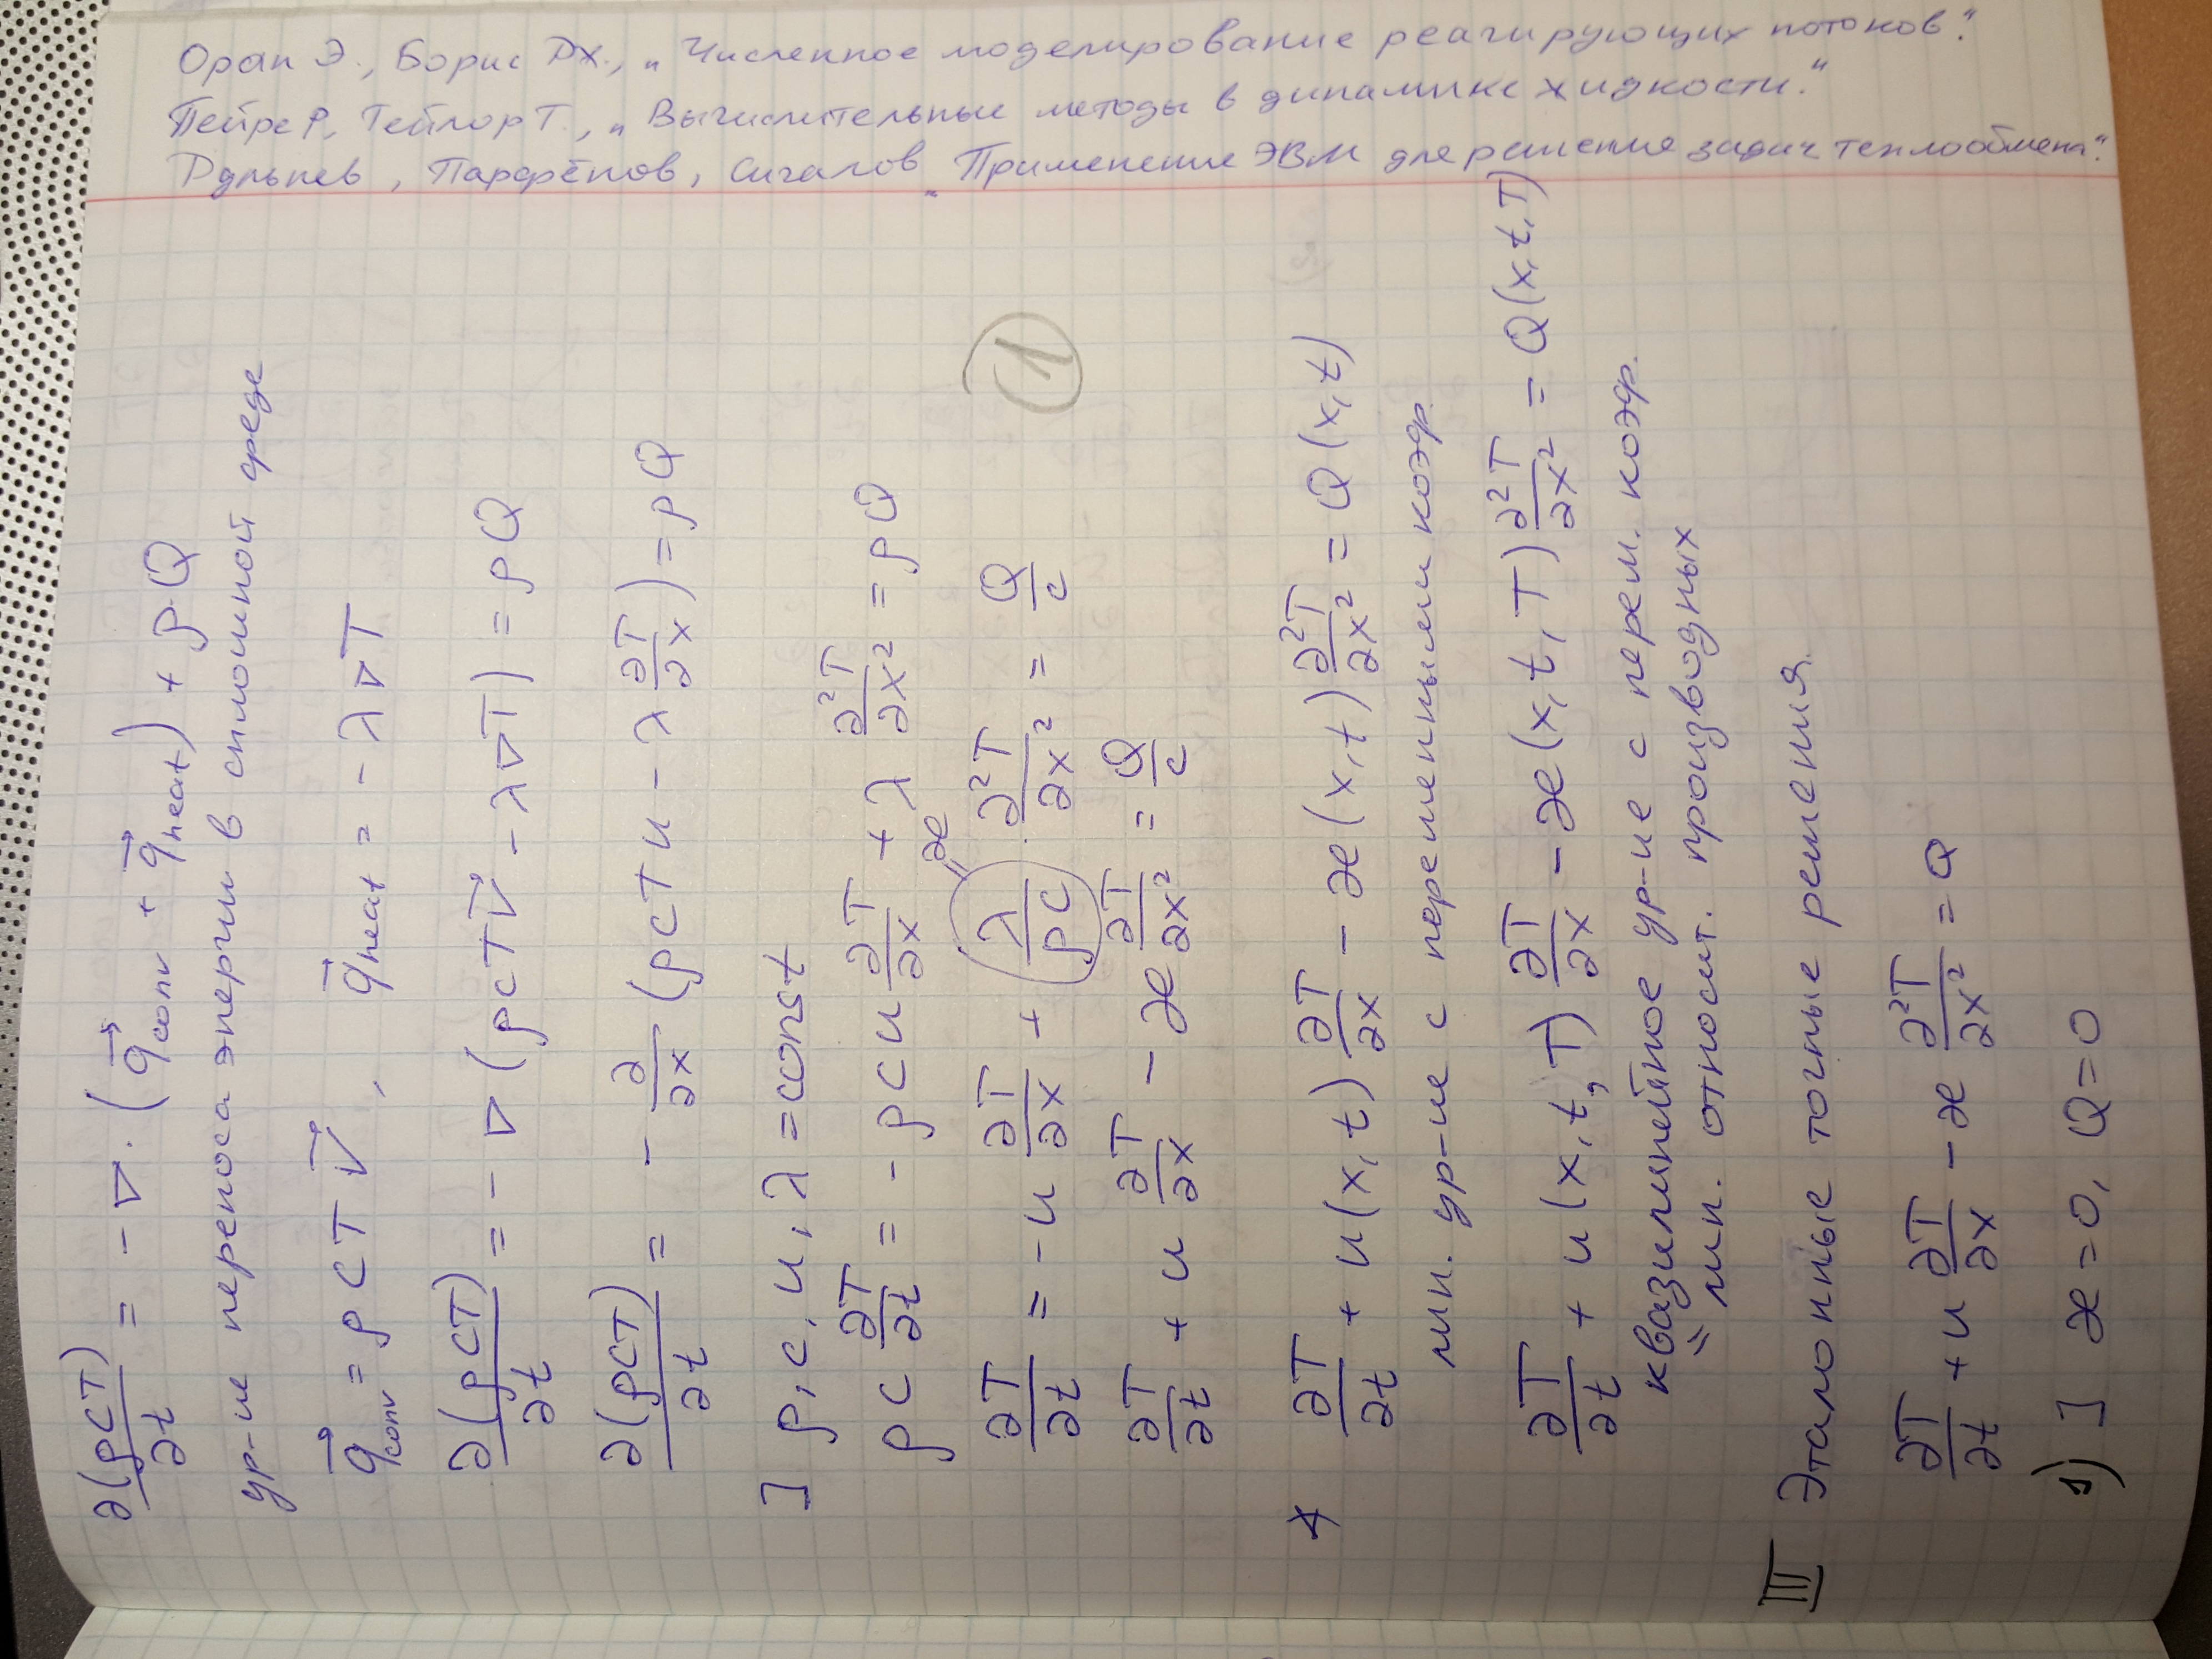 ∂(ρCT)/∂t = - ∇·(q⃗conv + q⃗heat) + ρQ
ур-ие переноса энергии в сплошной среде
q⃗conv = ρCTV⃗, q⃗heat = -λ∇T
∂(ρCT)/∂t = - ∇(ρCTV⃗ - λ∇T) = ρQ
∂(ρCT)/∂t = - ∂/∂x (ρCTu - λ ∂T/∂x) = ρQ
] ρ, c, u, λ = const
ρC ∂T/∂t = - ρCu ∂T/∂x + λ ∂²T/∂x² = ρQ
= æ
∂T/∂t = -u ∂T/∂x + λ/ρC · ∂²T/∂x² = Q/c
1
∂T/∂t + u ∂T/∂x - æ ∂T/∂x² = Q/c
∂T/∂t + u(x,t) ∂T/∂x - æ(x,t) ∂²T/∂x² = Q(x,t)
лин. ур-ие с переменными коэф.
∂T/∂t + u(x,t,T) ∂T/∂x - æ(x,t,T) ∂²T/∂x² = Q(x,t,T)
квазилинейное ур-ие с перем. коэф.
= лин. относит. производных
III Эталонные точные решения.
∂T/∂t + u ∂T/∂x - æ ∂²T/∂x² = Q
1) ] æ = 0, Q = 0
Оран Э., Борис Дж., "Численное моделирование реагирующих потоков."
Пейре Р., Тейлор Т., "Вычислительные методы в динамике жидкости."
Дульнев, Парфёнов, Сигалов "Применение ЭВМ для решения задач теплообмена".